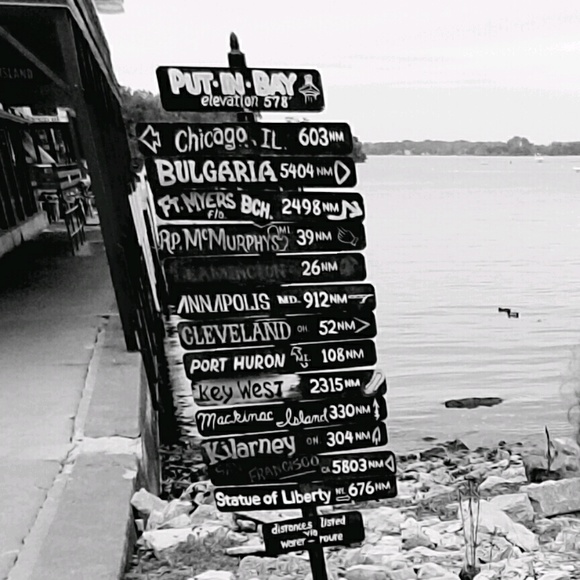 ISLAND
PUT-IN-BAY
elevation 578'
Chicago, IL. 603NM
BULGARIA 5404 NM
FT. MYERS BCH. 2498NM
fla.
R.P. McMURPHYS MI 39NM
LEAMINGTON 26NM
ANNAPOLIS MD. 912NM
CLEVELAND OH 52NM
PORT HURON MI. 108NM
Key West 2315NM
Mackinac Island 330NM
Kilarney ON. 304NM
SAN FRANCISCO CA 5803NM
Statue of Liberty NY. 676NM
distances listed
via
water-route